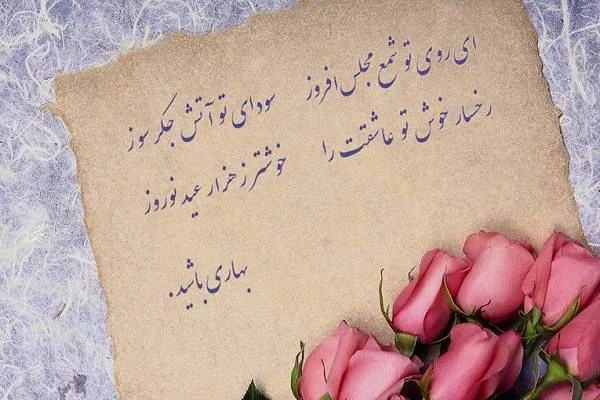 ای روی تو شمع مجلس افروز
سودای تو آتش جگر سوز
رخسار خوش تو عاشقت را
خوشتر ز هزار عید نوروز
بهاری باشید.